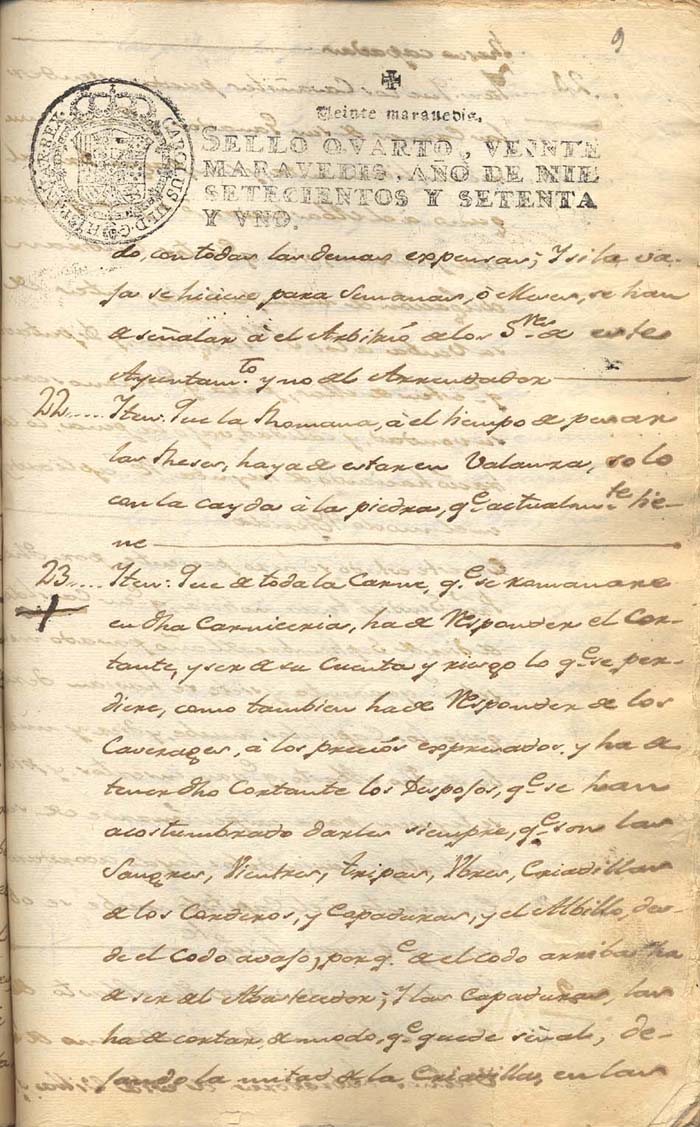 9
CAROLUS III D G HISPANIAR REX
Veinte maravedis.
SELLO QVARTO, VEINTE
MARAVEDIS, AÑO DE MIL
SETECIENTOS Y SETENTA
Y VNO.
do, con todas las demas expensas; Y si la va-
ja se hiciese para Semanas, ò Meses, se han
de señalar à el Arbitrió de los S.res de este
Ayuntam.to y no del Arrendador
22.... Iten: Que la Romana, à el tiempo de pesar
las Reses, haya de estar en Valanza, solo
con la cayda à la piedra, q.e actualm.te tie-
ne
23.... Iten: Que de toda la Carne, q.e se romanare
en dha Carniceria, ha de Responder el Cor-
tante, y ser de su Cuenta y riesgo lo q.e se per-
diere, como tambien ha de Responder de los
Caverages, à los preciós expresados, y ha de
tener dho Cortante los Despojos, q.e se han
acostumbrado darles siempre, q.e son las
Sangres, Vientres, tripas, Vbres, Criadillas
de los Corderos, y Capaduras, y el Albillo, des-
de el Codo avajo, porq.e de el codo arriba ha
de ser del Abastecedor; Y las Capaduras, las
ha de cortar, de modo, q.e quede señal, de-
jando la mitad de la Criadilla, en las